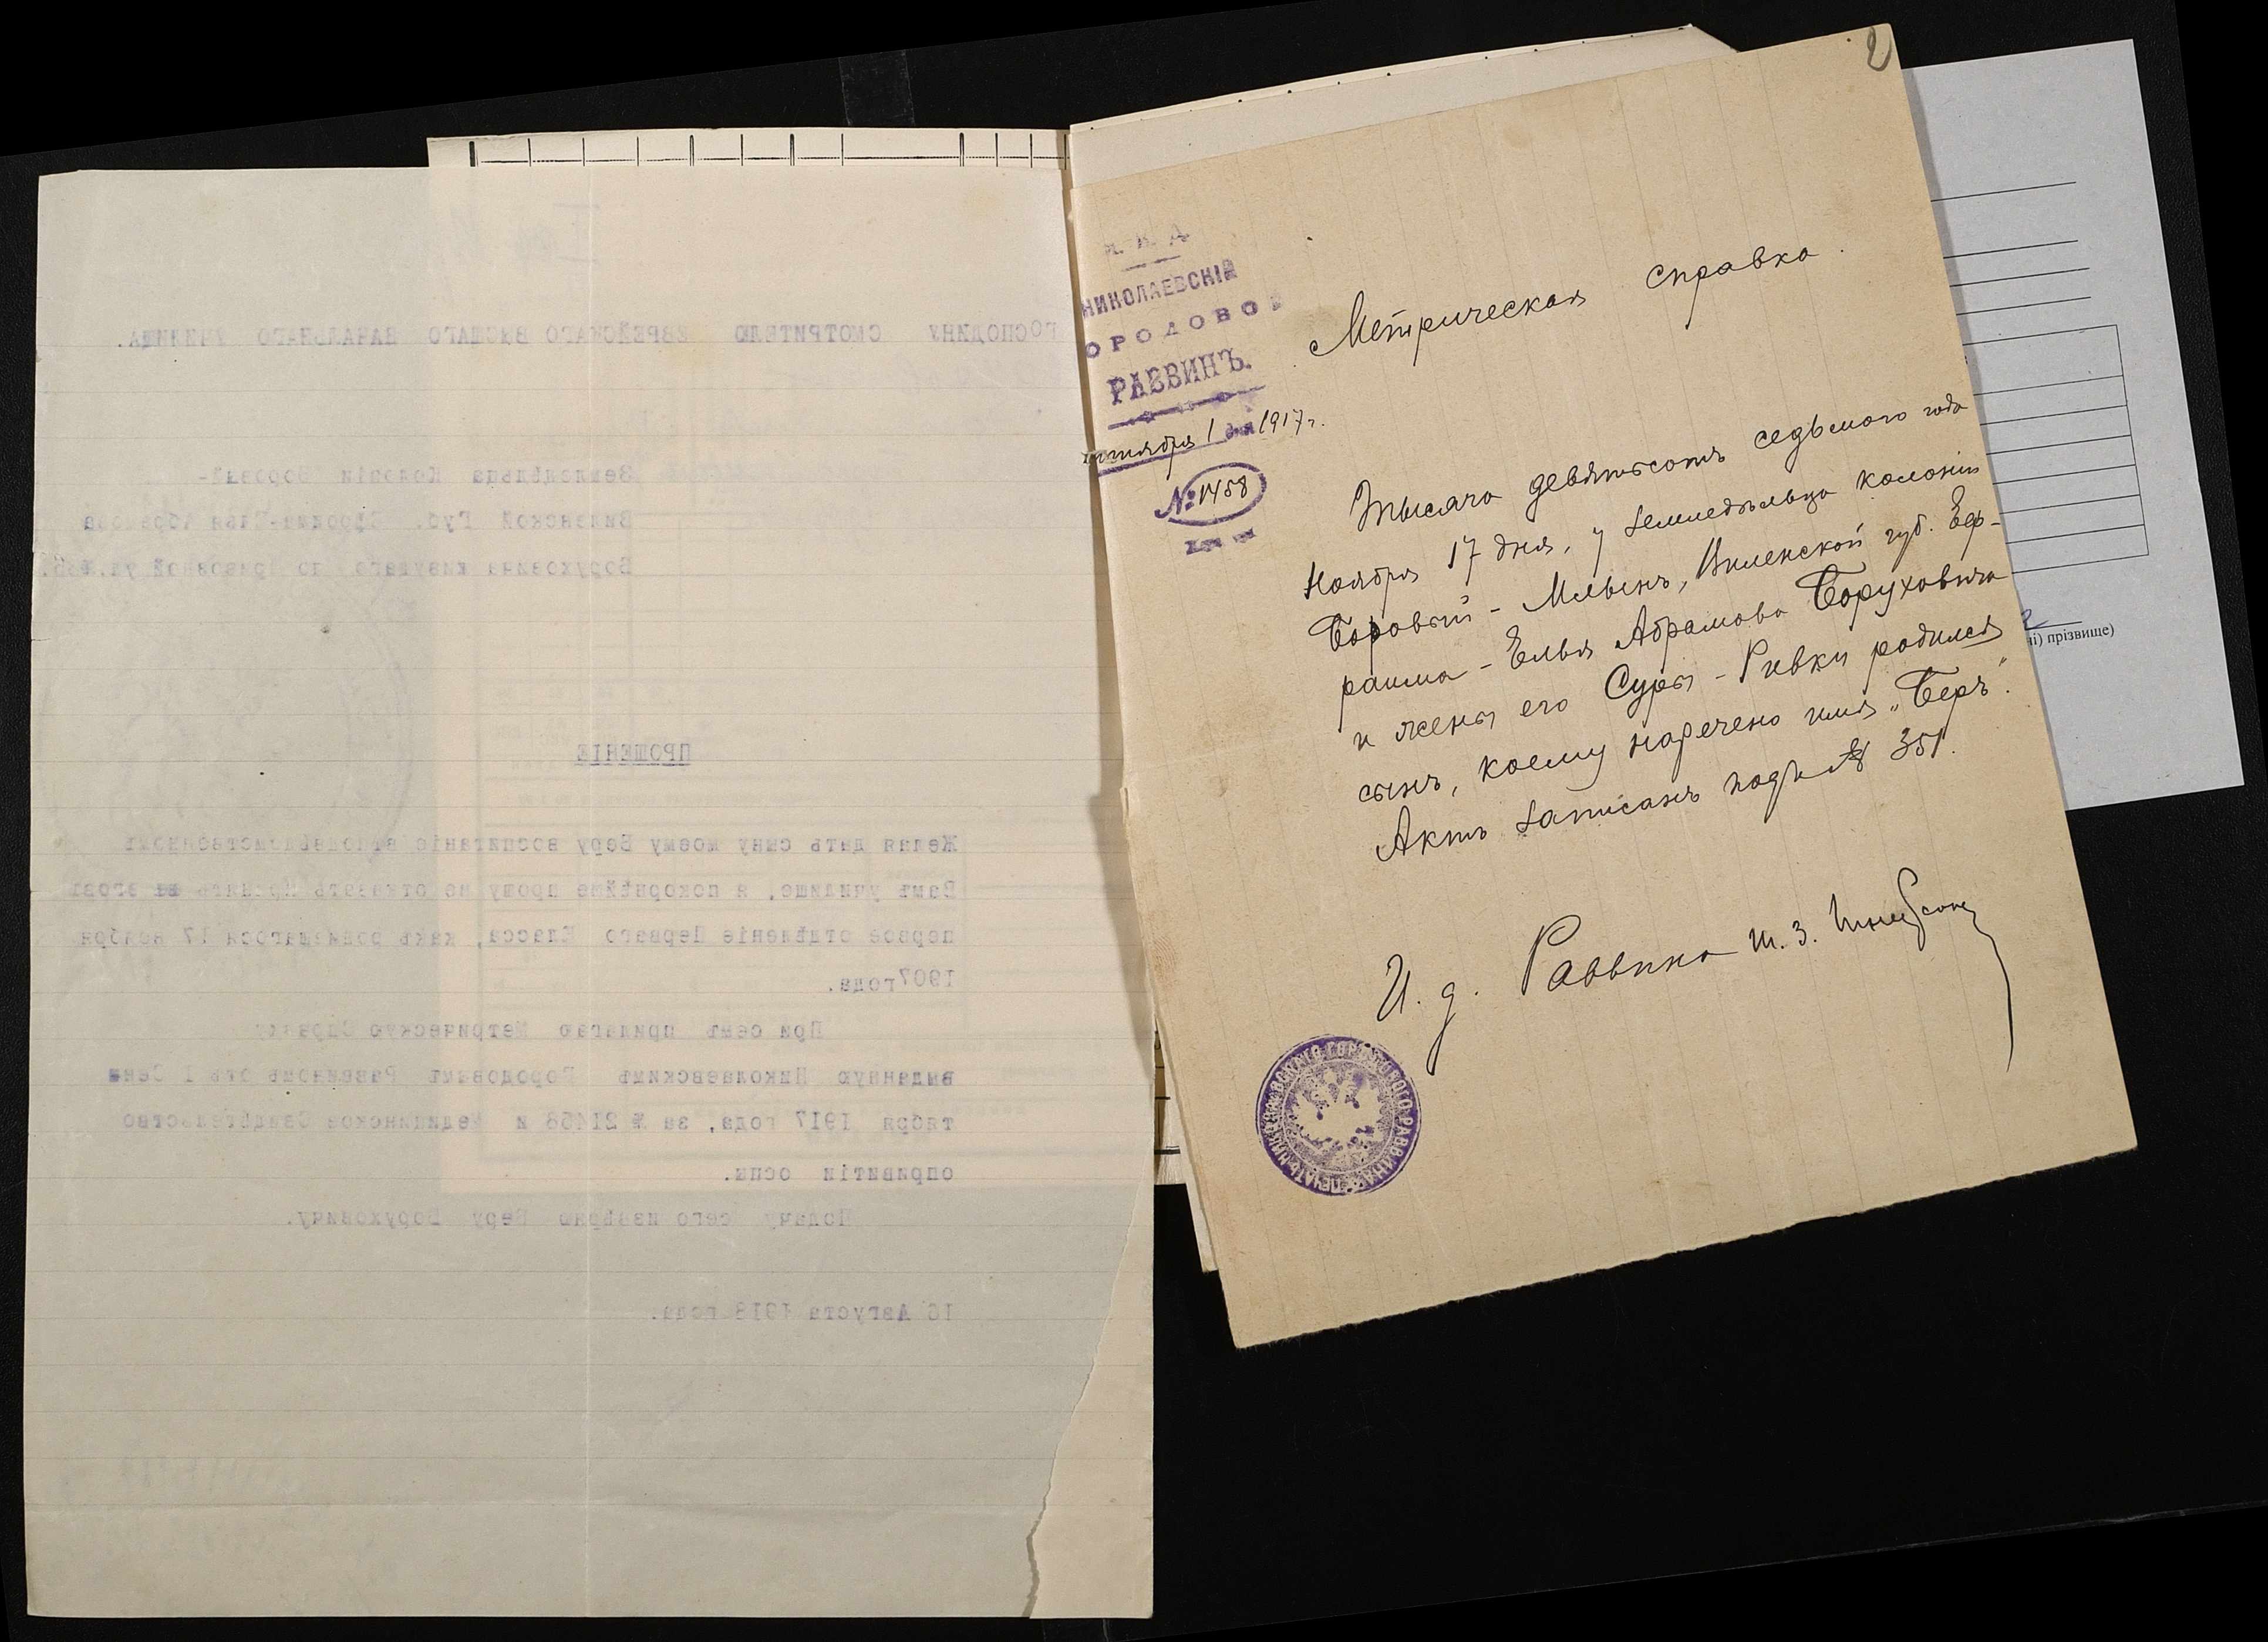 ГОСПОДИНУ СМОТРИТЕЛЮ ЕВРЕЙСКАГО ВЫСШАГО НАЧАЛЬНАГО УЧИЛИЩА.
Земледѣльца Колоніи Боровый-
Виленской Губ. Абрамова
Боруховича живущаго по ул.
ПРОШЕНІЕ
Желая дать сыну моему Беру воспитаніе
Вамъ училище, я покорнѣйше прошу не отказать принять его въ
первое отдѣленіе Перваго Класса, какъ родившагося 17 ноября
1907года.
При семъ прилагаю Метрическую Справку
выданную Николаевскимъ Городовымъ Раввиномъ отъ 1 Сен
тября 1917 года, за № 21458 и Медицинское Свидѣтельство
опривитіи оспы.
Подачу сего извѣряю Беру Боруховичу.
16 Августа 1918 года.
2
М. В. Д.
НИКОЛАЕВСКІЙ
ОРОДОВО
РАВВИНЪ.
1 дня 1917 г.
№ 1458
Метрическая справка.
Тысяча девятьсотъ седьмого года
Ноября 17 дня, у земледѣльца колоніи
Боровый - Млынъ, Виленской губ. Еф-
раима - Елья Абрамова Боруховича
и жены его Суры - Ривки родился
сынъ, коему наречено имя „Беръ".
Актъ записанъ подъ № 351.
И. д. Раввина Ш. З.
ПЕЧАТЬ НИКОЛАЕВСКАГО ГОРОДОВОГО РАВВИНА
ні) прізвище)